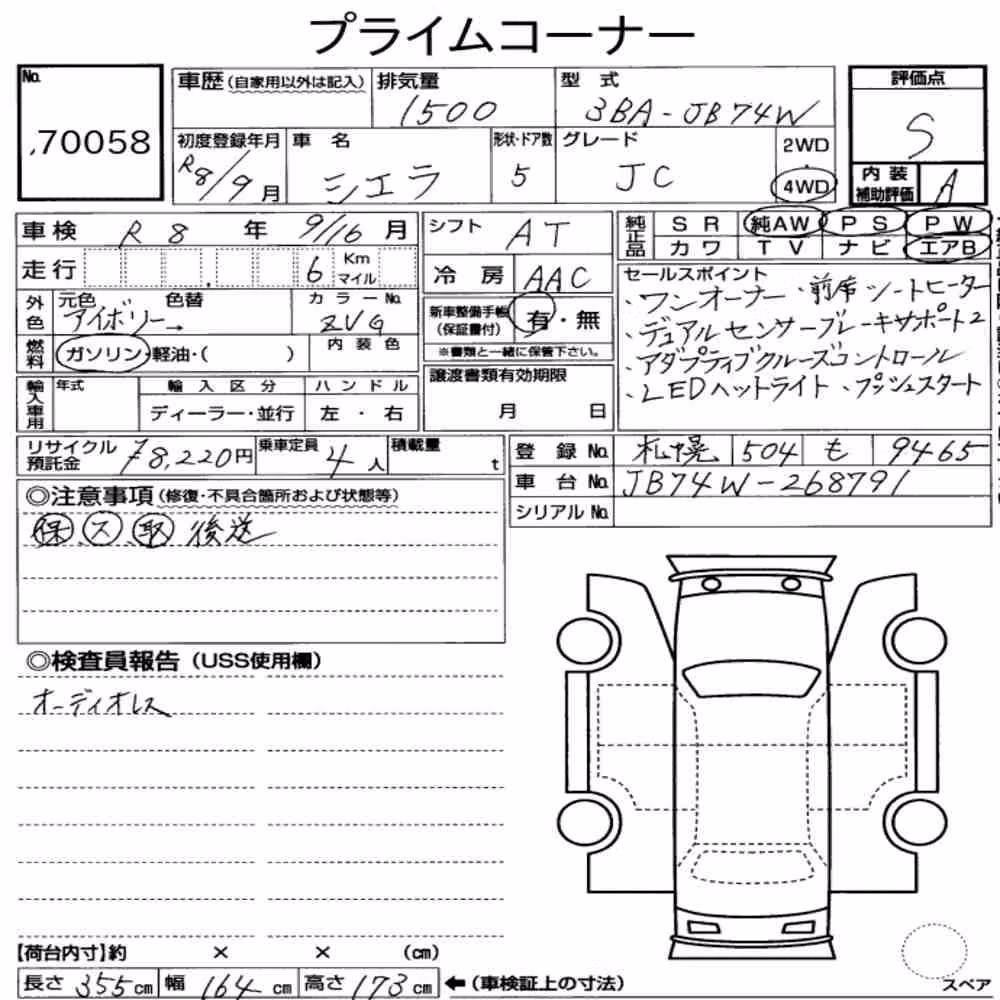 プライムコーナー
No. 70058
車歴(自家用以外は記入) 排気量 1500 型式 3BA-JB74W 評価点 S
初度登録年月 R8/9月 車名 シエラ 形状・ドア数 5 グレード JC 2WD 4WD 内装補助評価 A
車検 R8年 9/16月 シフト AT 純正品 SR 純AW PS PW
カワ TV ナビ エアB
走行 6 Km マイル 冷房 AAC
セールスポイント
・ワンオーナー ・前席シートヒーター
・デュアルセンサーブレーキサポート2
・アダプティブクルーズコントロール
・LEDヘッドライト ・プッシュスタート
外色 元色 アイボリー→ 色替 カラーNo. ZVG
新車整備手帳(保証書付) 有・無
※書類と一緒に保管下さい。
燃料 ガソリン・軽油・( ) 内装色
輸入車用 年式 輸入区分 ハンドル
ディーラー・並行 左・右
譲渡書類有効期限
月 日
リサイクル預託金 ¥8,220円 乗車定員 4人 積載量 t
登録No. 札幌 504 も 9465
車台No. JB74W-268791
シリアルNo.
◎注意事項(修復・不具合箇所および状態等)
保 ス 取 後送
◎検査員報告(USS使用欄)
オーディオレス
【荷台内寸】約 × × (cm)
長さ 355cm 幅 164cm 高さ 173cm ←(車検証上の寸法)
スペア